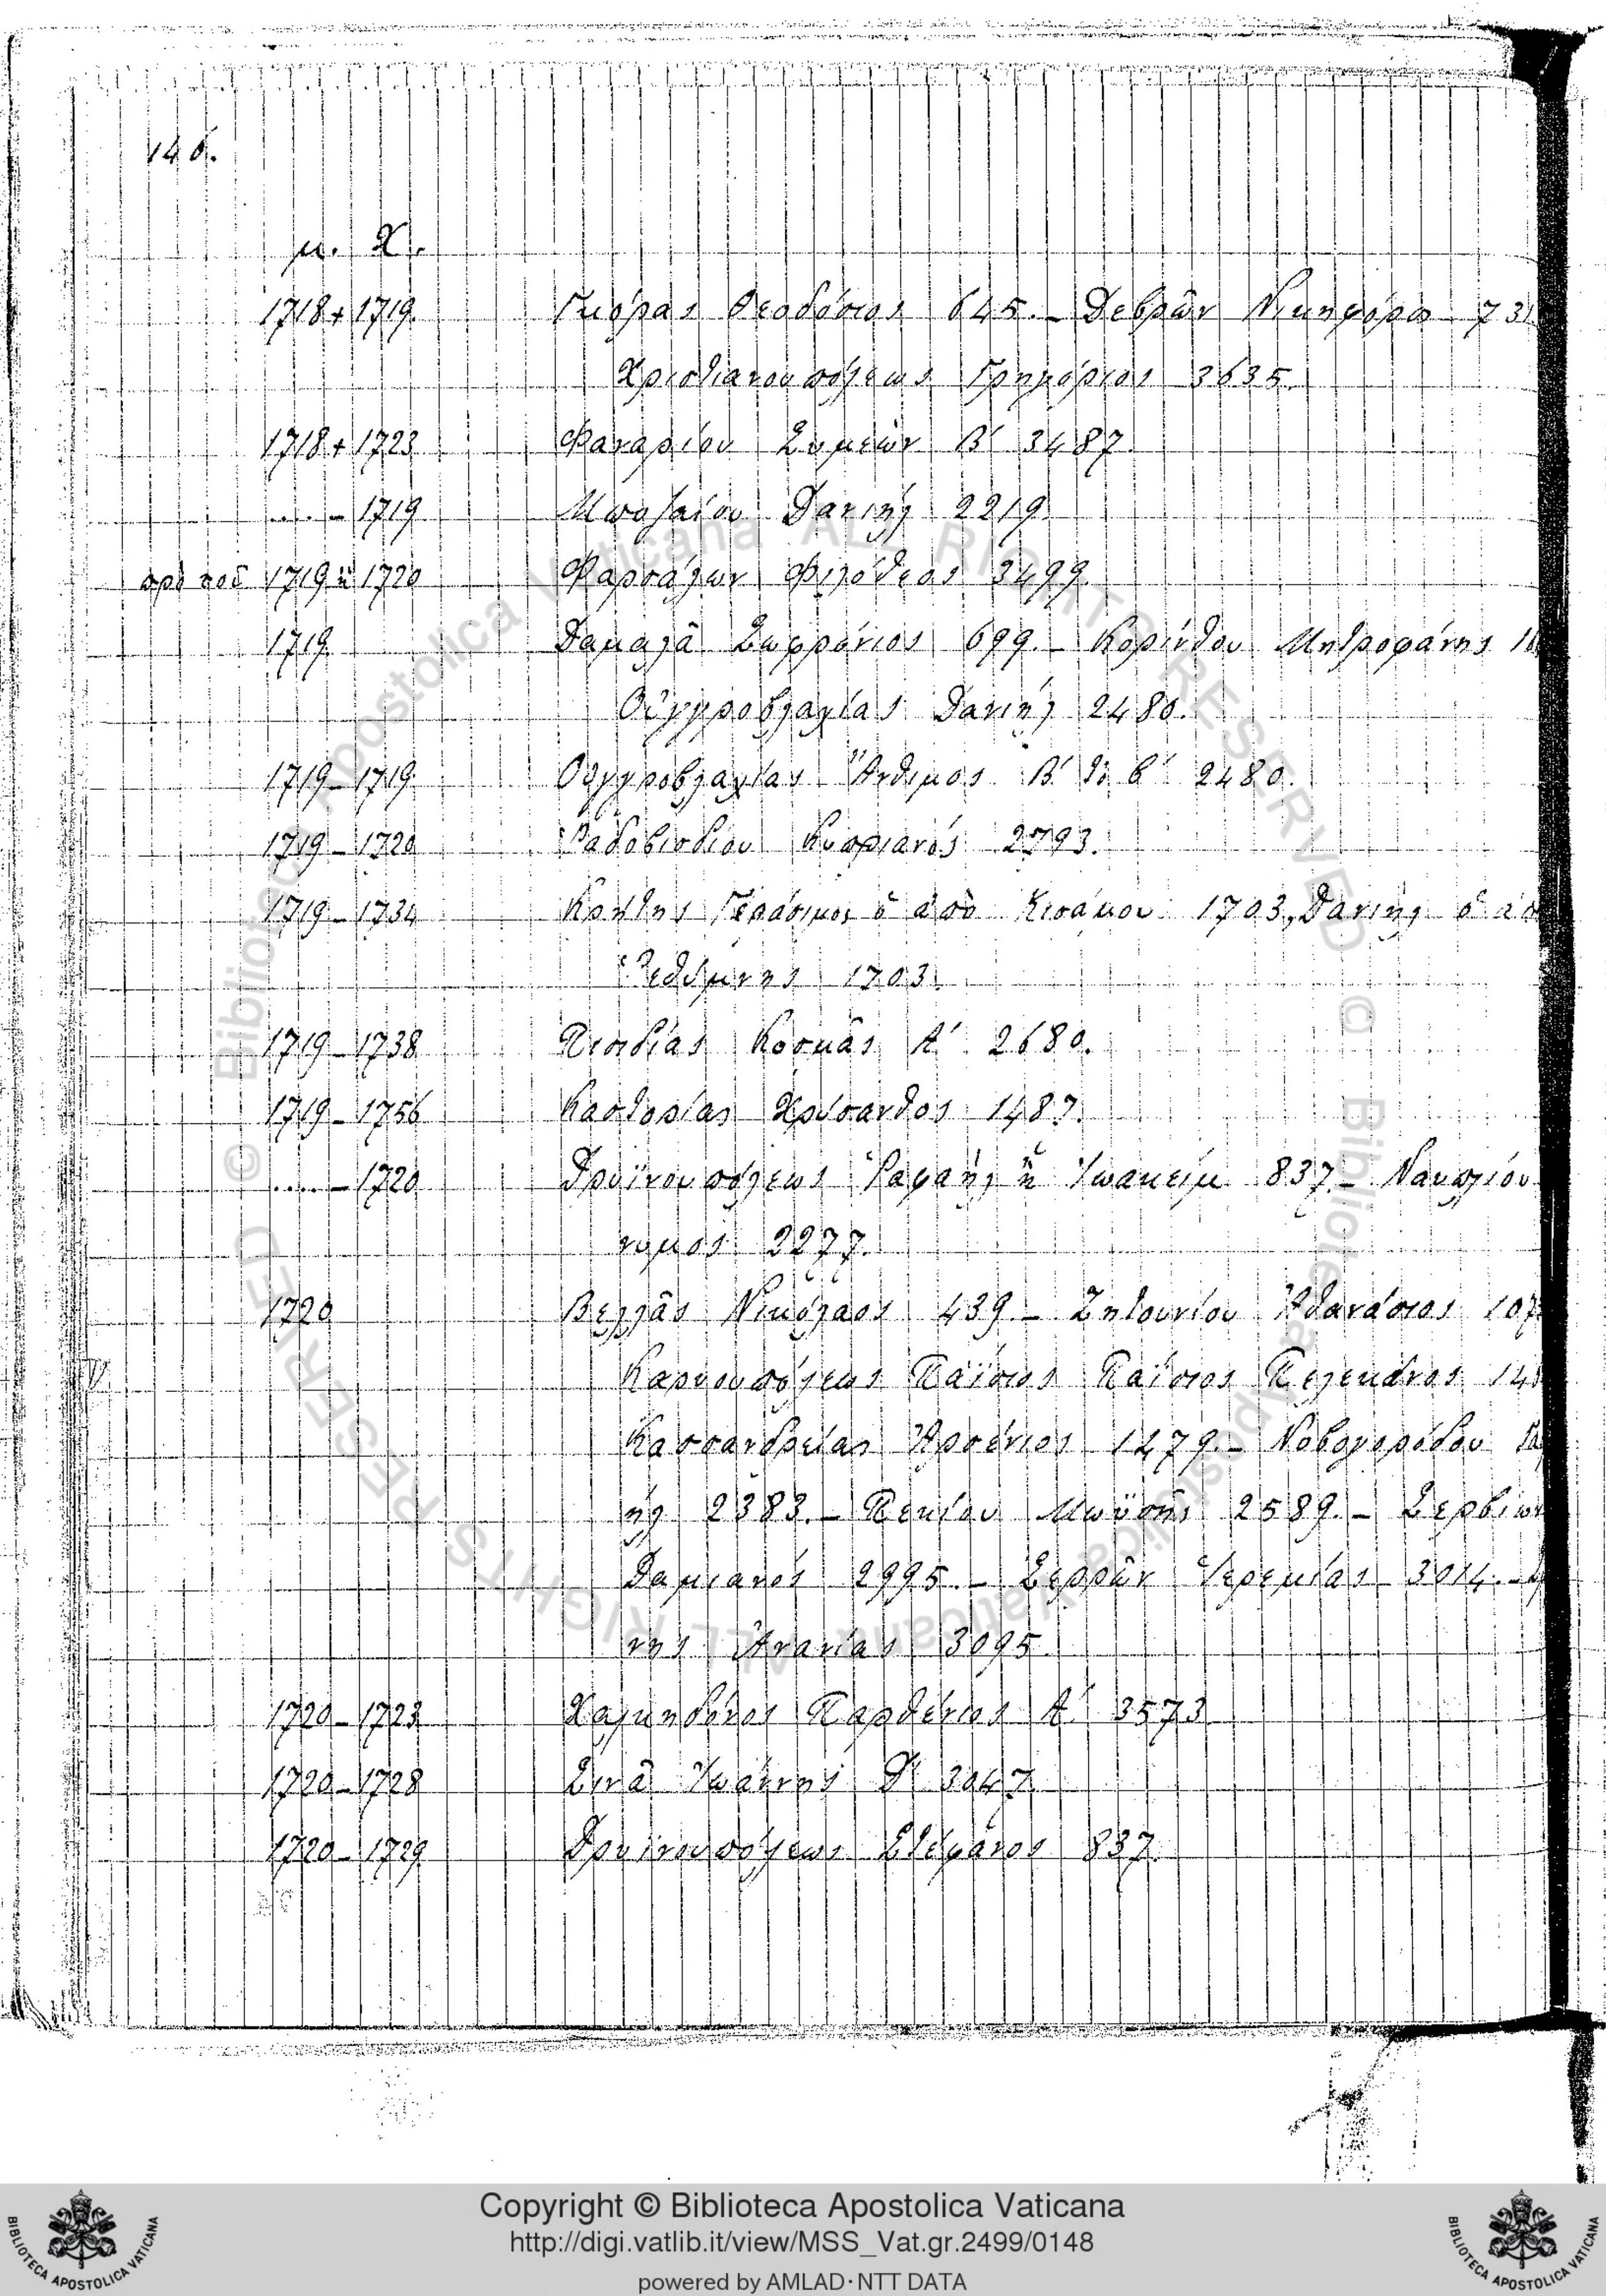 146.
μ. Χ.
1718 + 1719 Γκιόρας Θεοδόσιος 645. – Δεβρῶν Νικηφόρος 731
Χριστιανουπόλεως Γρηγόριος 3635.
1718 + 1723 Φαναρίου Συμεὼν Β' 3487.
..... – 1719 Μυρλαίου Δανιὴλ 2219.
πρὸ τοῦ 1719 ἢ 1720 Φαρσάλων Φιλόθεος 3499.
1719 Δαμαλᾶ Σωφρόνιος 699. – Κορίνθου Μητροφάνης
Οὐγγροβλαχίας Δανιὴλ 2480.
1719 – 1719 Οὐγγροβλαχίας Ἄνθιμος Β' 2480.
1719 – 1720 Ῥαδοβισδίου Κυπριανός 2793.
1719 – 1734 Κρήτης Γεράσιμος ὁ ἀπὸ Κισάμου 1703, Δανιὴλ ὁ
Ῥεθύμνης 1703.
1719 – 1738 Πισιδίας Κοσμᾶς Α'. 2680.
1719 – 1756 Καστορίας Χρύσανθος 1487.
..... – 1720 Δρυϊνουπόλεως Ῥαφαὴλ ἢ Ἰωακεὶμ 837. – Ναυπλίου
2277.
1720 Βελλᾶς Νικόλαος 439. – Ζητουνίου Ἀθανάσιος 107
Καρυουπόλεως Παΐσιος Παΐσιος 14
Κασσανδρείας Ἀρσένιος 1479. – Νοβογορόδου
ήλ 2383. – Πεκίου Μωϋσῆς 2589. – Σερβίων
Δαμιανός 2995. – Σερρῶν Ἱερεμίας 3014. –
νης Ἀνανίας 3095.
1720 – 1723 Χαλκηδόνος Παρθένιος Α' 3573
1720 – 1728 Σινᾶ 3047.
1720 – 1729 Δρυϊνουπόλεως Στέφανος 837.
© Biblioteca Apostolica Vaticana ALL RIGHTS RESERVED
Copyright © Biblioteca Apostolica Vaticana
http://digi.vatlib.it/view/MSS_Vat.gr.2499/0148
powered by AMLAD·NTT DATA
BIBLIOTECA APOSTOLICA VATICANA
BIBLIOTECA APOSTOLICA VATICANA